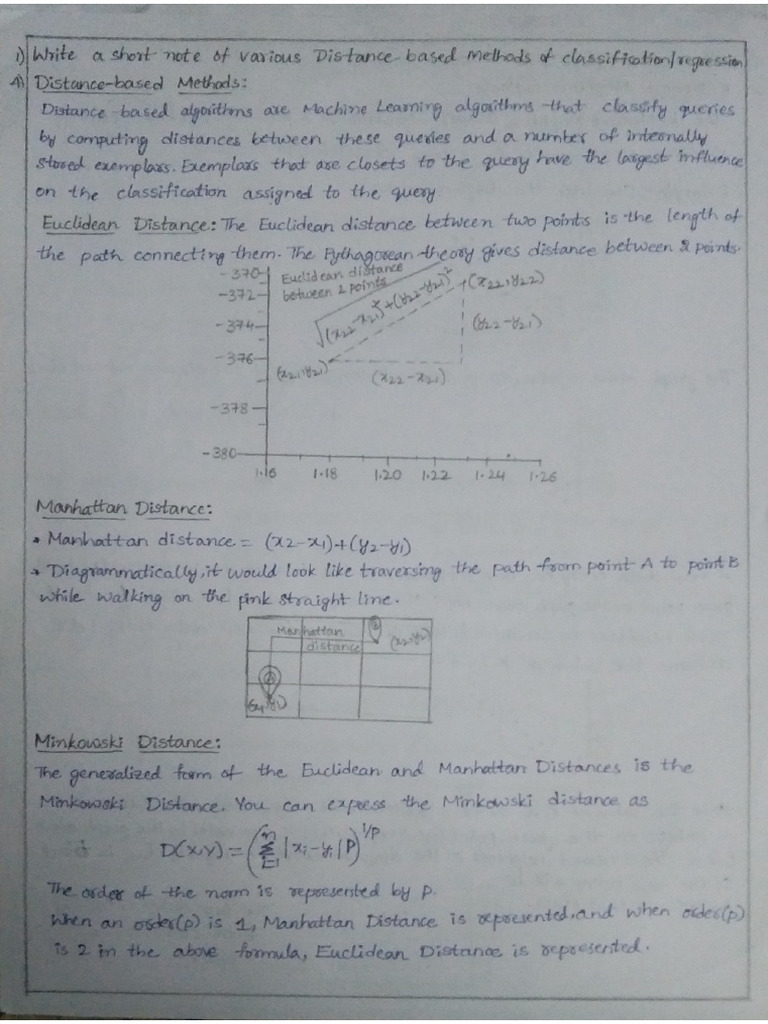 1) Write a short note of various Distance-based methods of classification/regression
A) Distance-based Methods:
Distance-based algorithms are Machine Learning algorithms that classify queries
by computing distances between these queries and a number of internally
stored exemplars. Exemplars that are closets to the query have the largest influence
on the classification assigned to the query
Euclidean Distance: The Euclidean distance between two points is the length of
the path connecting them. The Pythagorean theory gives distance between 2 points.
-370
Euclidean distance
between 2 points
-372
√(x22-x21)²+(y22-y21)²
(x22,y22)
-374
(y22-y21)
-376
(x21,y21)
(x22-x21)
-378
-380
1.16 1.18 1.20 1.22 1.24 1.26
Manhattan Distance:
• Manhattan distance = (x2-x1)+(y2-y1)
• Diagrammatically, it would look like traversing the path from point A to point B
while walking on the pink straight line.
Manhattan
distance
(x2,y2)
A
(x1,y1)
Minkowski Distance:
The generalized form of the Euclidean and Manhattan Distances is the
Minkowski Distance. You can expess the Minkowski distance as
D(X,Y) = (Σ i=1 n |xi-yi|P)^1/P
The order of the norm is represented by P.
When an order(p) is 1, Manhattan Distance is represented, and when order(p)
is 2 in the above formula, Euclidean Distance is represented.